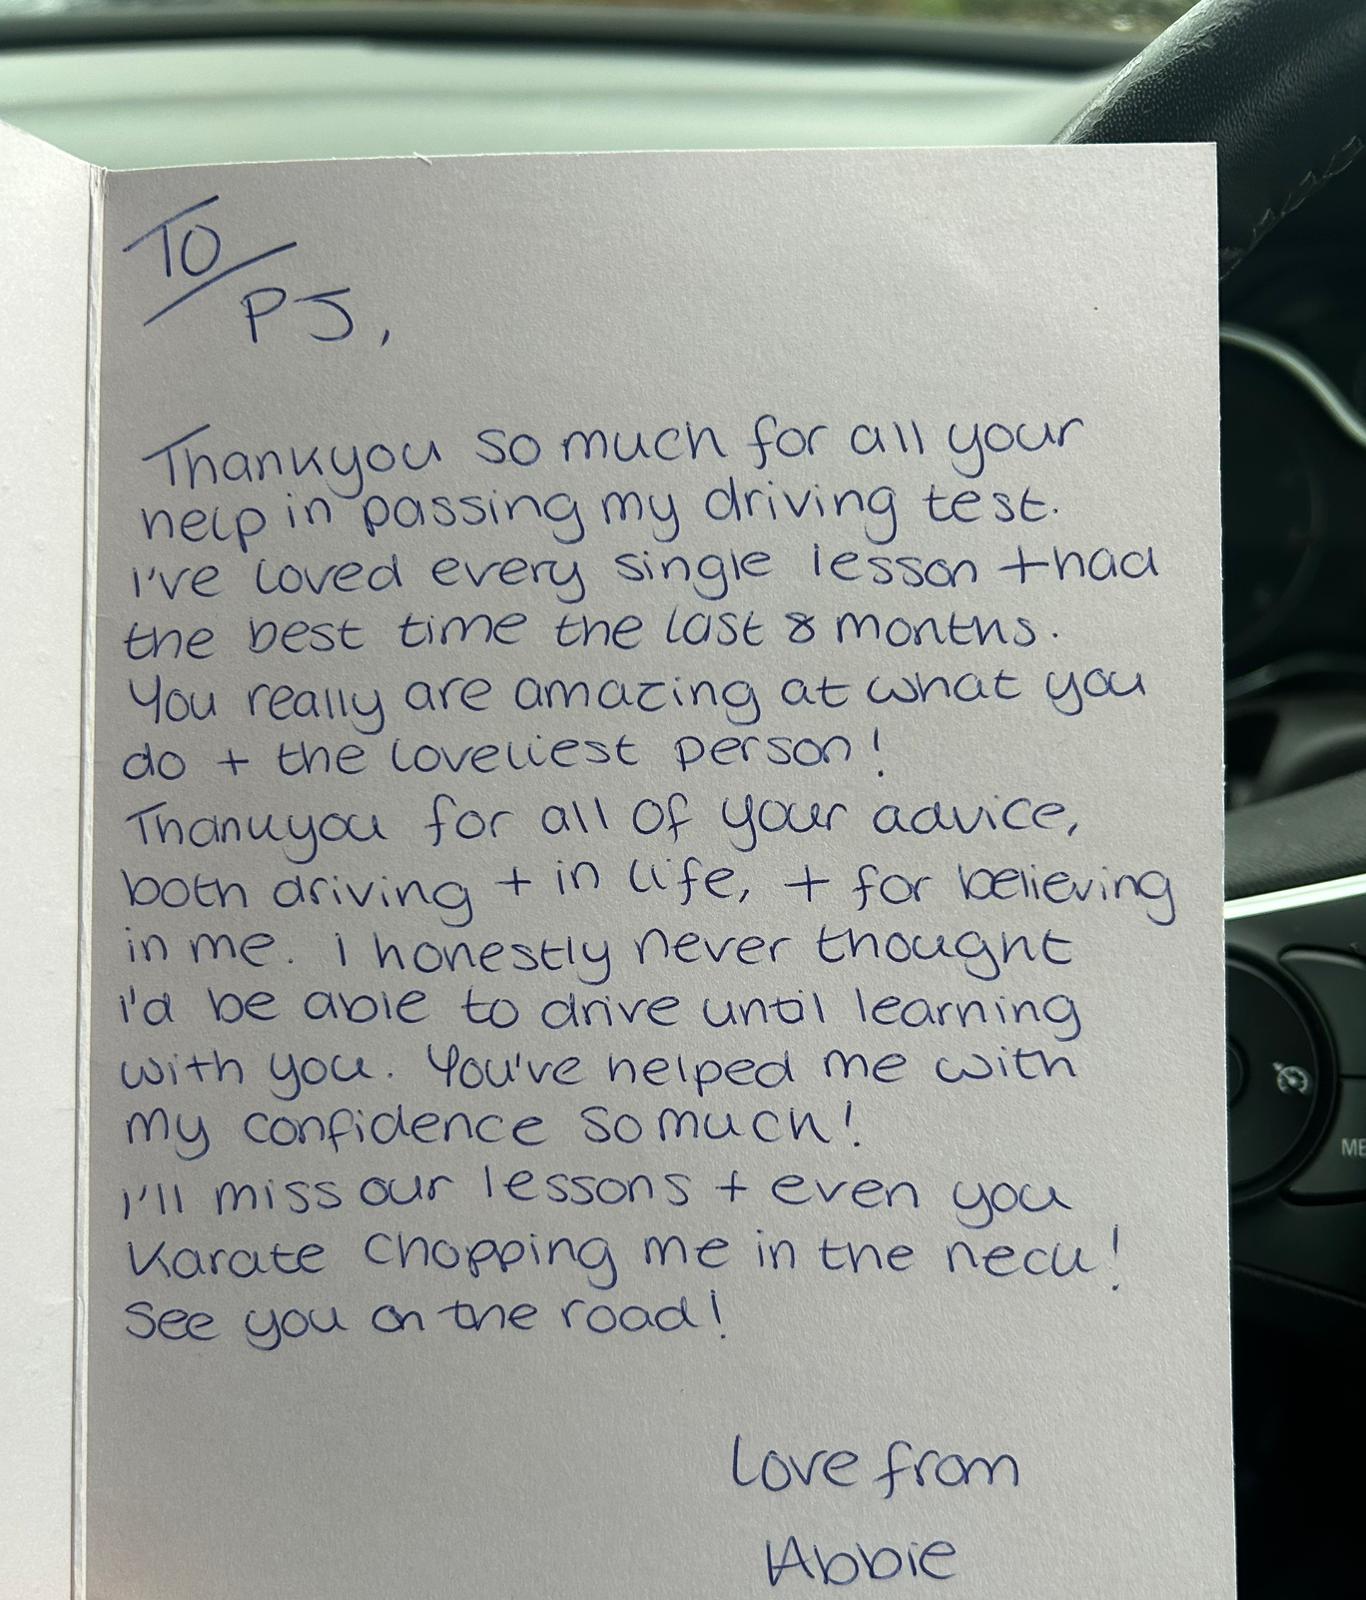 TO
PJ,
Thankyou so much for all your
help in passing my driving test.
I've loved every single lesson + had
the best time the last 8 months.
You really are amazing at what you
do + the loveliest person!
Thankyou for all of your advice,
both driving + in life, + for believing
in me. I honestly never thought
I'd be able to drive until learning
with you. You've helped me with
my confidence so much!
I'll miss our lessons + even you
Karate chopping me in the neck!
See you on the road!
Love from
Abbie